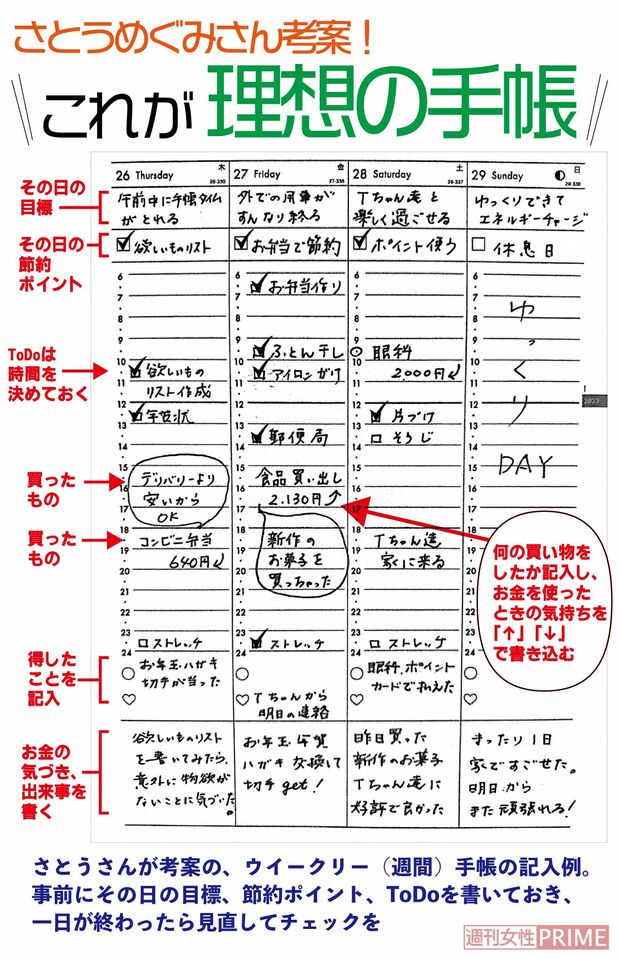 さとうめぐみさん考案！
これが理想の手帳
26 Thursday 木
26-339
27 Friday 金
27-338
28 Saturday 土
28-337
29 Sunday 日
29-336
その日の
目標
午前中に手帳タイム
がとれる
外での用事が
すんなり終る
Tちゃん達と
楽しく過ごせる
ゆっくりできて
エネルギーチャージ
その日の
節約
ポイント
欲しいものリスト
お弁当で節約
ポイント使う
休息日
ToDoは
時間を
決めておく
買った
もの
買った
もの
得した
ことを
記入
お金の
気づき、
出来事を
書く
6
7
8
9
10
11
12
13
14
15
16
17
18
19
20
21
22
23
24
欲しいもの
リスト作成
年賀状
デリバリーより
安いから
OK
コンビニ弁当
640円↓
ストレッチ
お年玉ハガキ
切手が当った
欲しいものリスト
を書いてみたら、
意外に物欲が
ないことに気づいた。
6
7
8
9
10
11
12
13
14
15
16
17
18
19
20
21
22
23
24
お弁当作り
ふとん干し
アイロンがけ
郵便局
食品買い出し
2.130円↑
新作の
お菓子を
買っちゃった
ストレッチ
Tちゃんから
明日の連絡
お年玉年賀
ハガキ交換して
切手get！
6
7
8
9
10
11
12
13
14
15
16
17
18
19
20
21
22
23
24
眼科
2,000円↓
片づけ
そうじ
Tちゃん達
家に来る
ストレッチ
眼科、ポイント
カードで払えた
昨日買った
新作のお菓子
Tちゃん達に
好評で良かった
6
7
8
9
10
11
12
13
14
15
16
17
18
19
20
21
22
23
24
ゆっくり
DAY
まったり1日
家ですごせた。
明日から
また頑張れる！
1
2023
何の買い物を
したか記入し、
お金を使った
ときの気持ちを
「↑」「↓」
で書き込む
さとうさんが考案の、ウイークリー（週間）手帳の記入例。
事前にその日の目標、節約ポイント、ToDoを書いておき、
一日が終わったら見直してチェックを
週刊女性PRIME